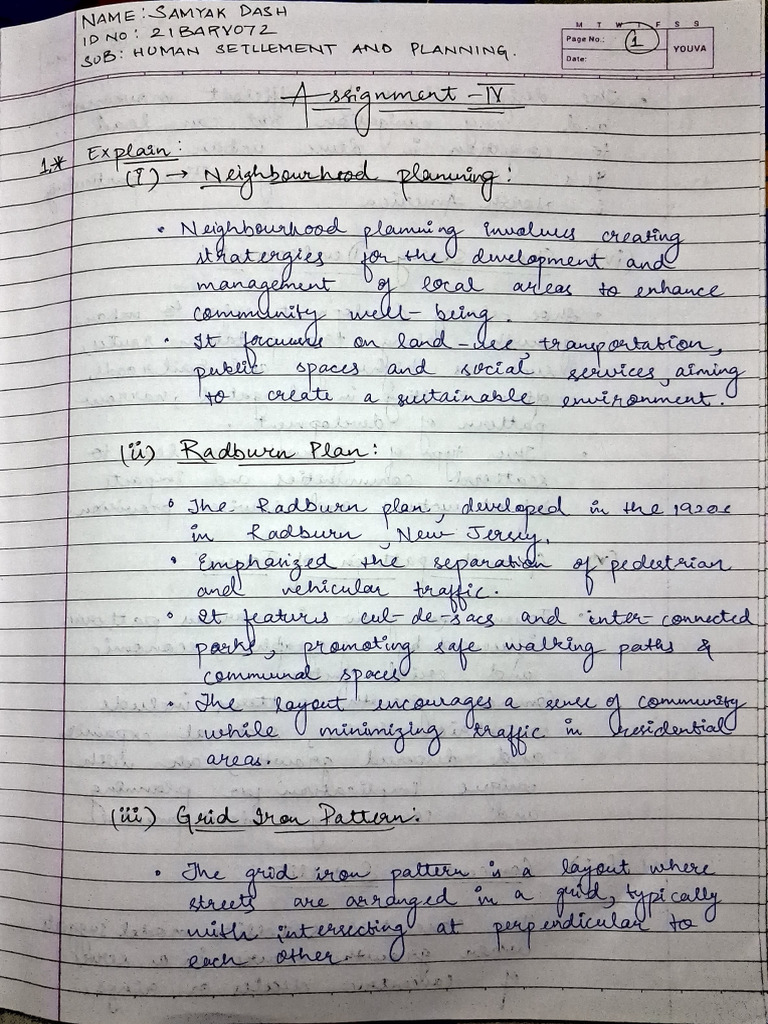 NAME: SAMYAK DASH
ID NO: 21BARY072
SUB: HUMAN SETLLEMENT AND PLANNING.
M T W T F S S
Page No.: 1
Date:
YOUVA
Assignment - IV
1.* Explain:
(i) → Neighbourhood planning:
• Neighbourhood planning involves creating
stratergies for the development and
management of local areas to enhance
community well-being.
• It focuses on land-use, transportation,
public spaces and social services, aiming
to create a sustainable environment.
(ii) Radburn Plan:
• The Radburn plan, developed in the 1920s
in Radburn, New Jersey.
• Emphasized the separation of pedestrian
and vehicular traffic.
• It features cul-de-sacs and inter-connected
parks, promoting safe walking paths &
communal spaces
• The layout encourages a sense of community
while minimizing traffic in residential
areas.
(iii) Grid Iron Pattern:
• The grid iron pattern is a layout where
streets are arranged in a grid, typically
with intersecting at perpendicular to
each other.